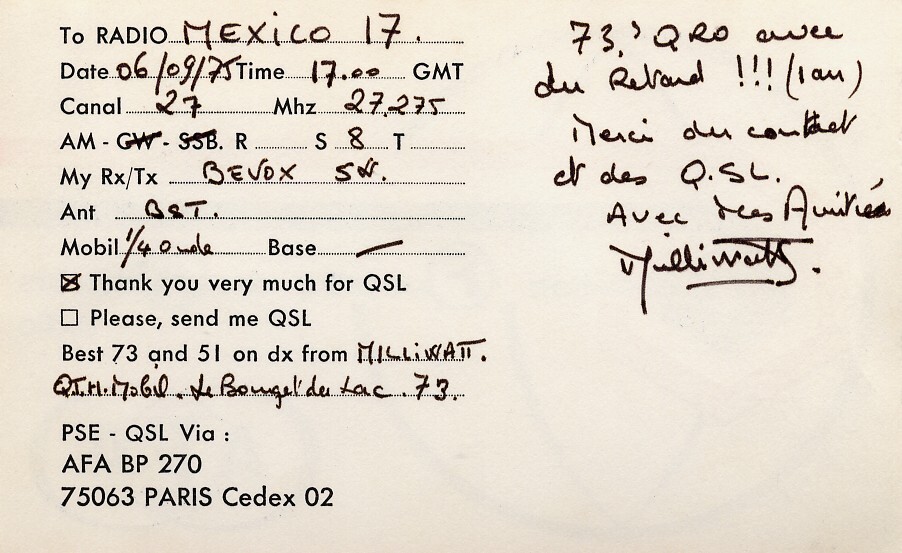 To RADIO MEXICO 17.
Date 06/09/75 Time 17.00 GMT
Canal 27 Mhz 27,275
AM - CW - SSB. R S 8 T
My Rx/Tx BEVOX 5W.
Ant BST.
Mobil 1/4 onde Base —
☒ Thank you very much for QSL
☐ Please, send me QSL
Best 73 and 51 on dx from MILLIWATT.
Q.T.H. Mobil. Le Bourget du Lac. 73.
PSE - QSL Via :
AFA BP 270
75063 PARIS Cedex 02
73,' QRO avec
du Retard !!! (1 an)
Merci du contact
et des Q.SL.
Avec mes Amitiés
Milliwatt.